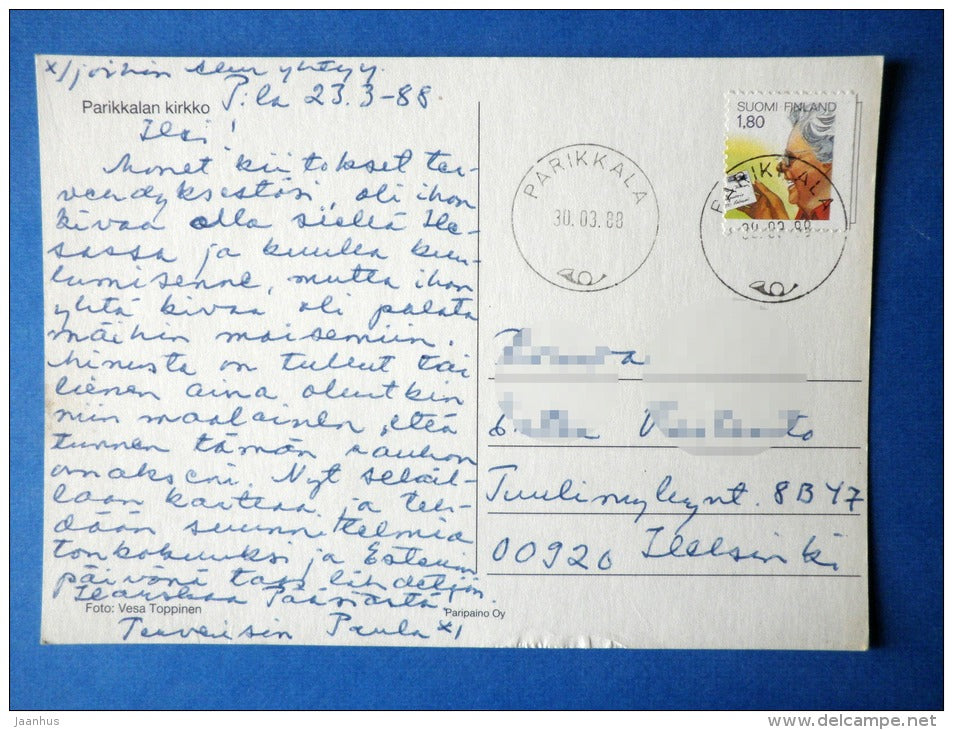 x/ joihin seur yhtyy.
Parikkalan kirkko
P:la 23.3-88.
monet kiitokset ter-
veydyksestäsi, oli ihan
kivaa olla siellä
sassa ja kuulla kuu-
lumisenne, mutta ihan
yhtä kivaa oli palata
näihin maisemiin.
Minusta on tullut tai
lienen aina ollutkin
niin maalainen, että
tunnen tämän rauhan
omakseni. Nyt selail-
laan karttaa ja teh-
dään suunnitelmia
toukokuuksi ja
päivänä taas lähdetään.
Hauskaa Pääsiäistä.
Foto: Vesa Toppinen
Terveisin Paula x/
Paripaino Oy
SUOMI FINLAND
1,80
PARIKKALA
30.03.88
PARIKKALA
30.03.88
Tuulimyllynt. 8 B 47
00920 Helsinki
jaanhus
www.delcampe.net